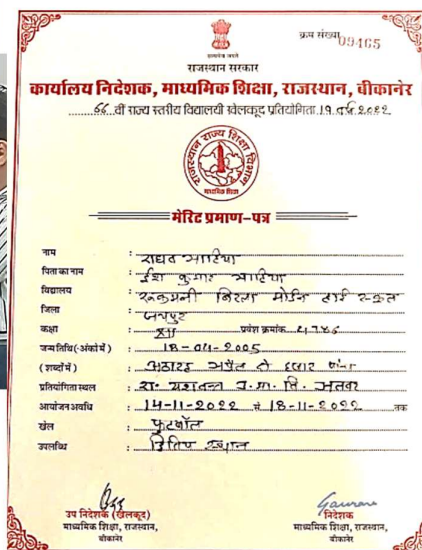 क्रम संख्या 09465
सत्यमेव जयते
राजस्थान सरकार
कार्यालय निदेशक, माध्यमिक शिक्षा, राजस्थान, बीकानेर
66 वीं राज्य स्तरीय विद्यालयी खेलकूद प्रतियोगिता 19 वर्ष 2022
राजस्थान राज्य शिक्षा विभाग
माध्यमिक शिक्षा
मेरिट प्रमाण-पत्र
नाम : राघव भाटिया
पिता का नाम : ईश कुमार भाटिया
विद्यालय : रूकमनी बिरला मोर्डन हाई स्कूल
जिला : जयपुर
कक्षा : XII प्रवेश क्रमांक 4786
जन्म तिथि (-अंकों में) : 18-04-2005
(शब्दों में) : अठारह अप्रैल दो हजार पांच
प्रतियोगिता स्थल : रा. यशवन्त उ.मा. वि. अलवर
आयोजन अवधि : 14-11-2022 से 18-11-2022 तक
खेल : फुटबॉल
उपलब्धि : द्वितीय स्थान
उप निदेशक (खेलकूद)
माध्यमिक शिक्षा, राजस्थान,
बीकानेर
Gaurav
निदेशक
माध्यमिक शिक्षा, राजस्थान,
बीकानेर